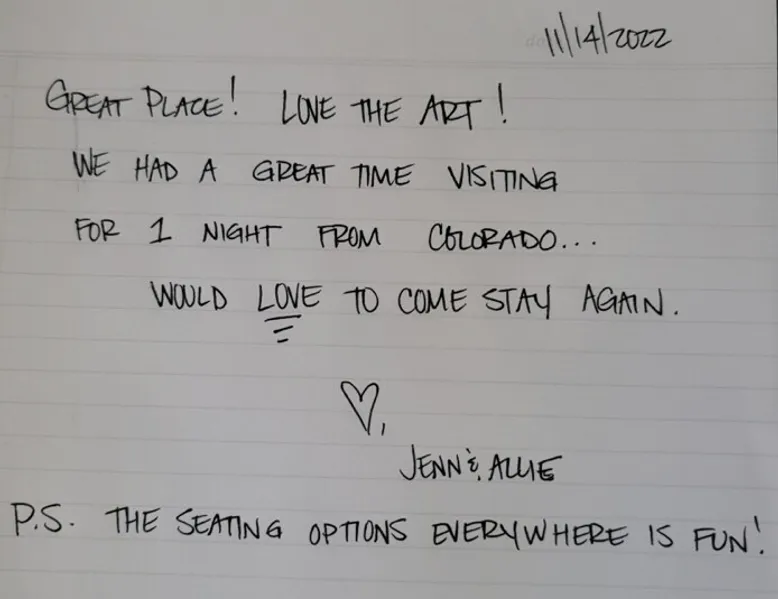 11/14/2022
GREAT PLACE! LOVE THE ART!
WE HAD A GREAT TIME VISITING
FOR 1 NIGHT FROM COLORADO...
WOULD LOVE TO COME STAY AGAIN.
♡,
JENN & ALLIE
P.S. THE SEATING OPTIONS EVERYWHERE IS FUN!